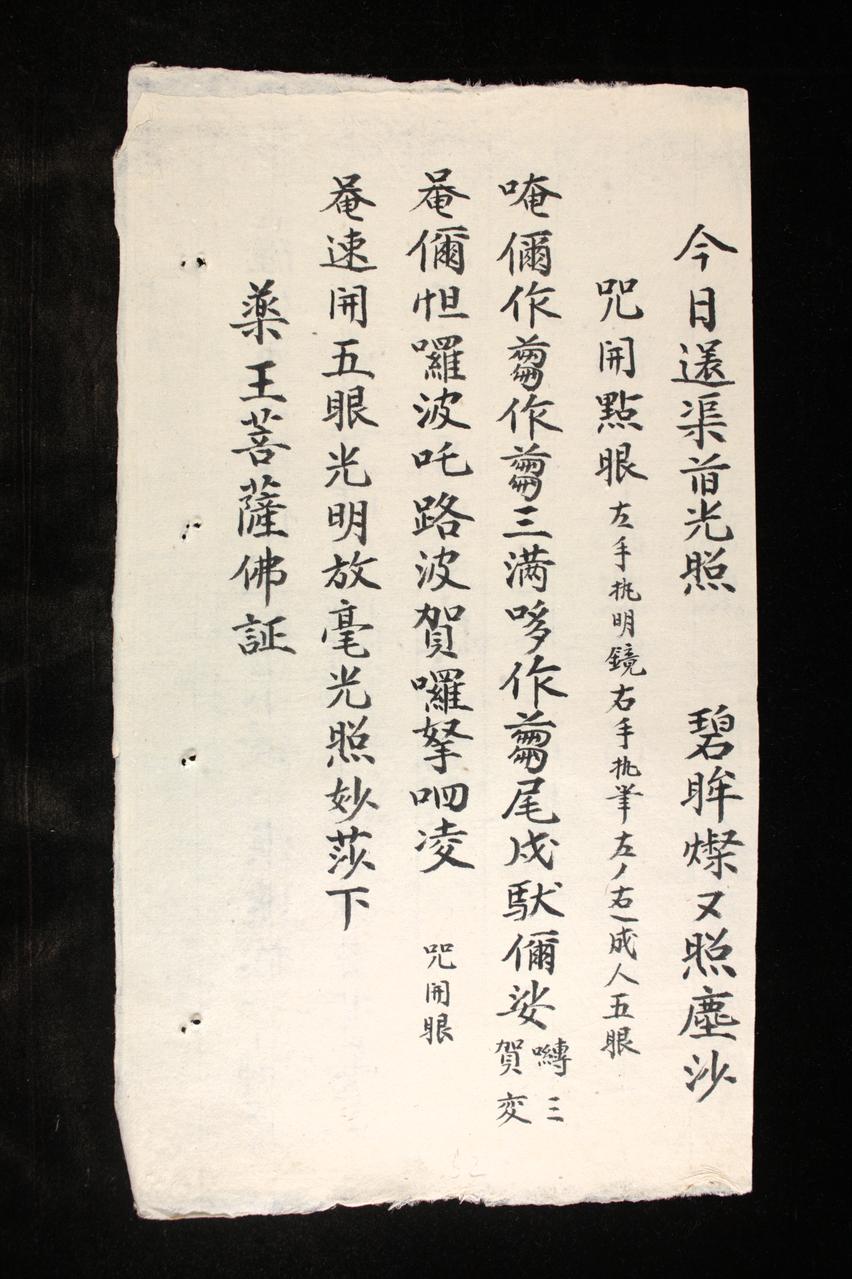 今日還渠首光照 碧眸燦又照塵沙
咒開點眼 左手执明鏡右手执筆左丿右一成人五眼
唵儞作蒭作蒭三满哆作蒭尾戍馱儞娑嚩賀三変
唵儞怛囉波吒路波賀囉拏呬凌 咒開眼
唵速開五眼光明放毫光照妙莎下
薬王菩薩佛証